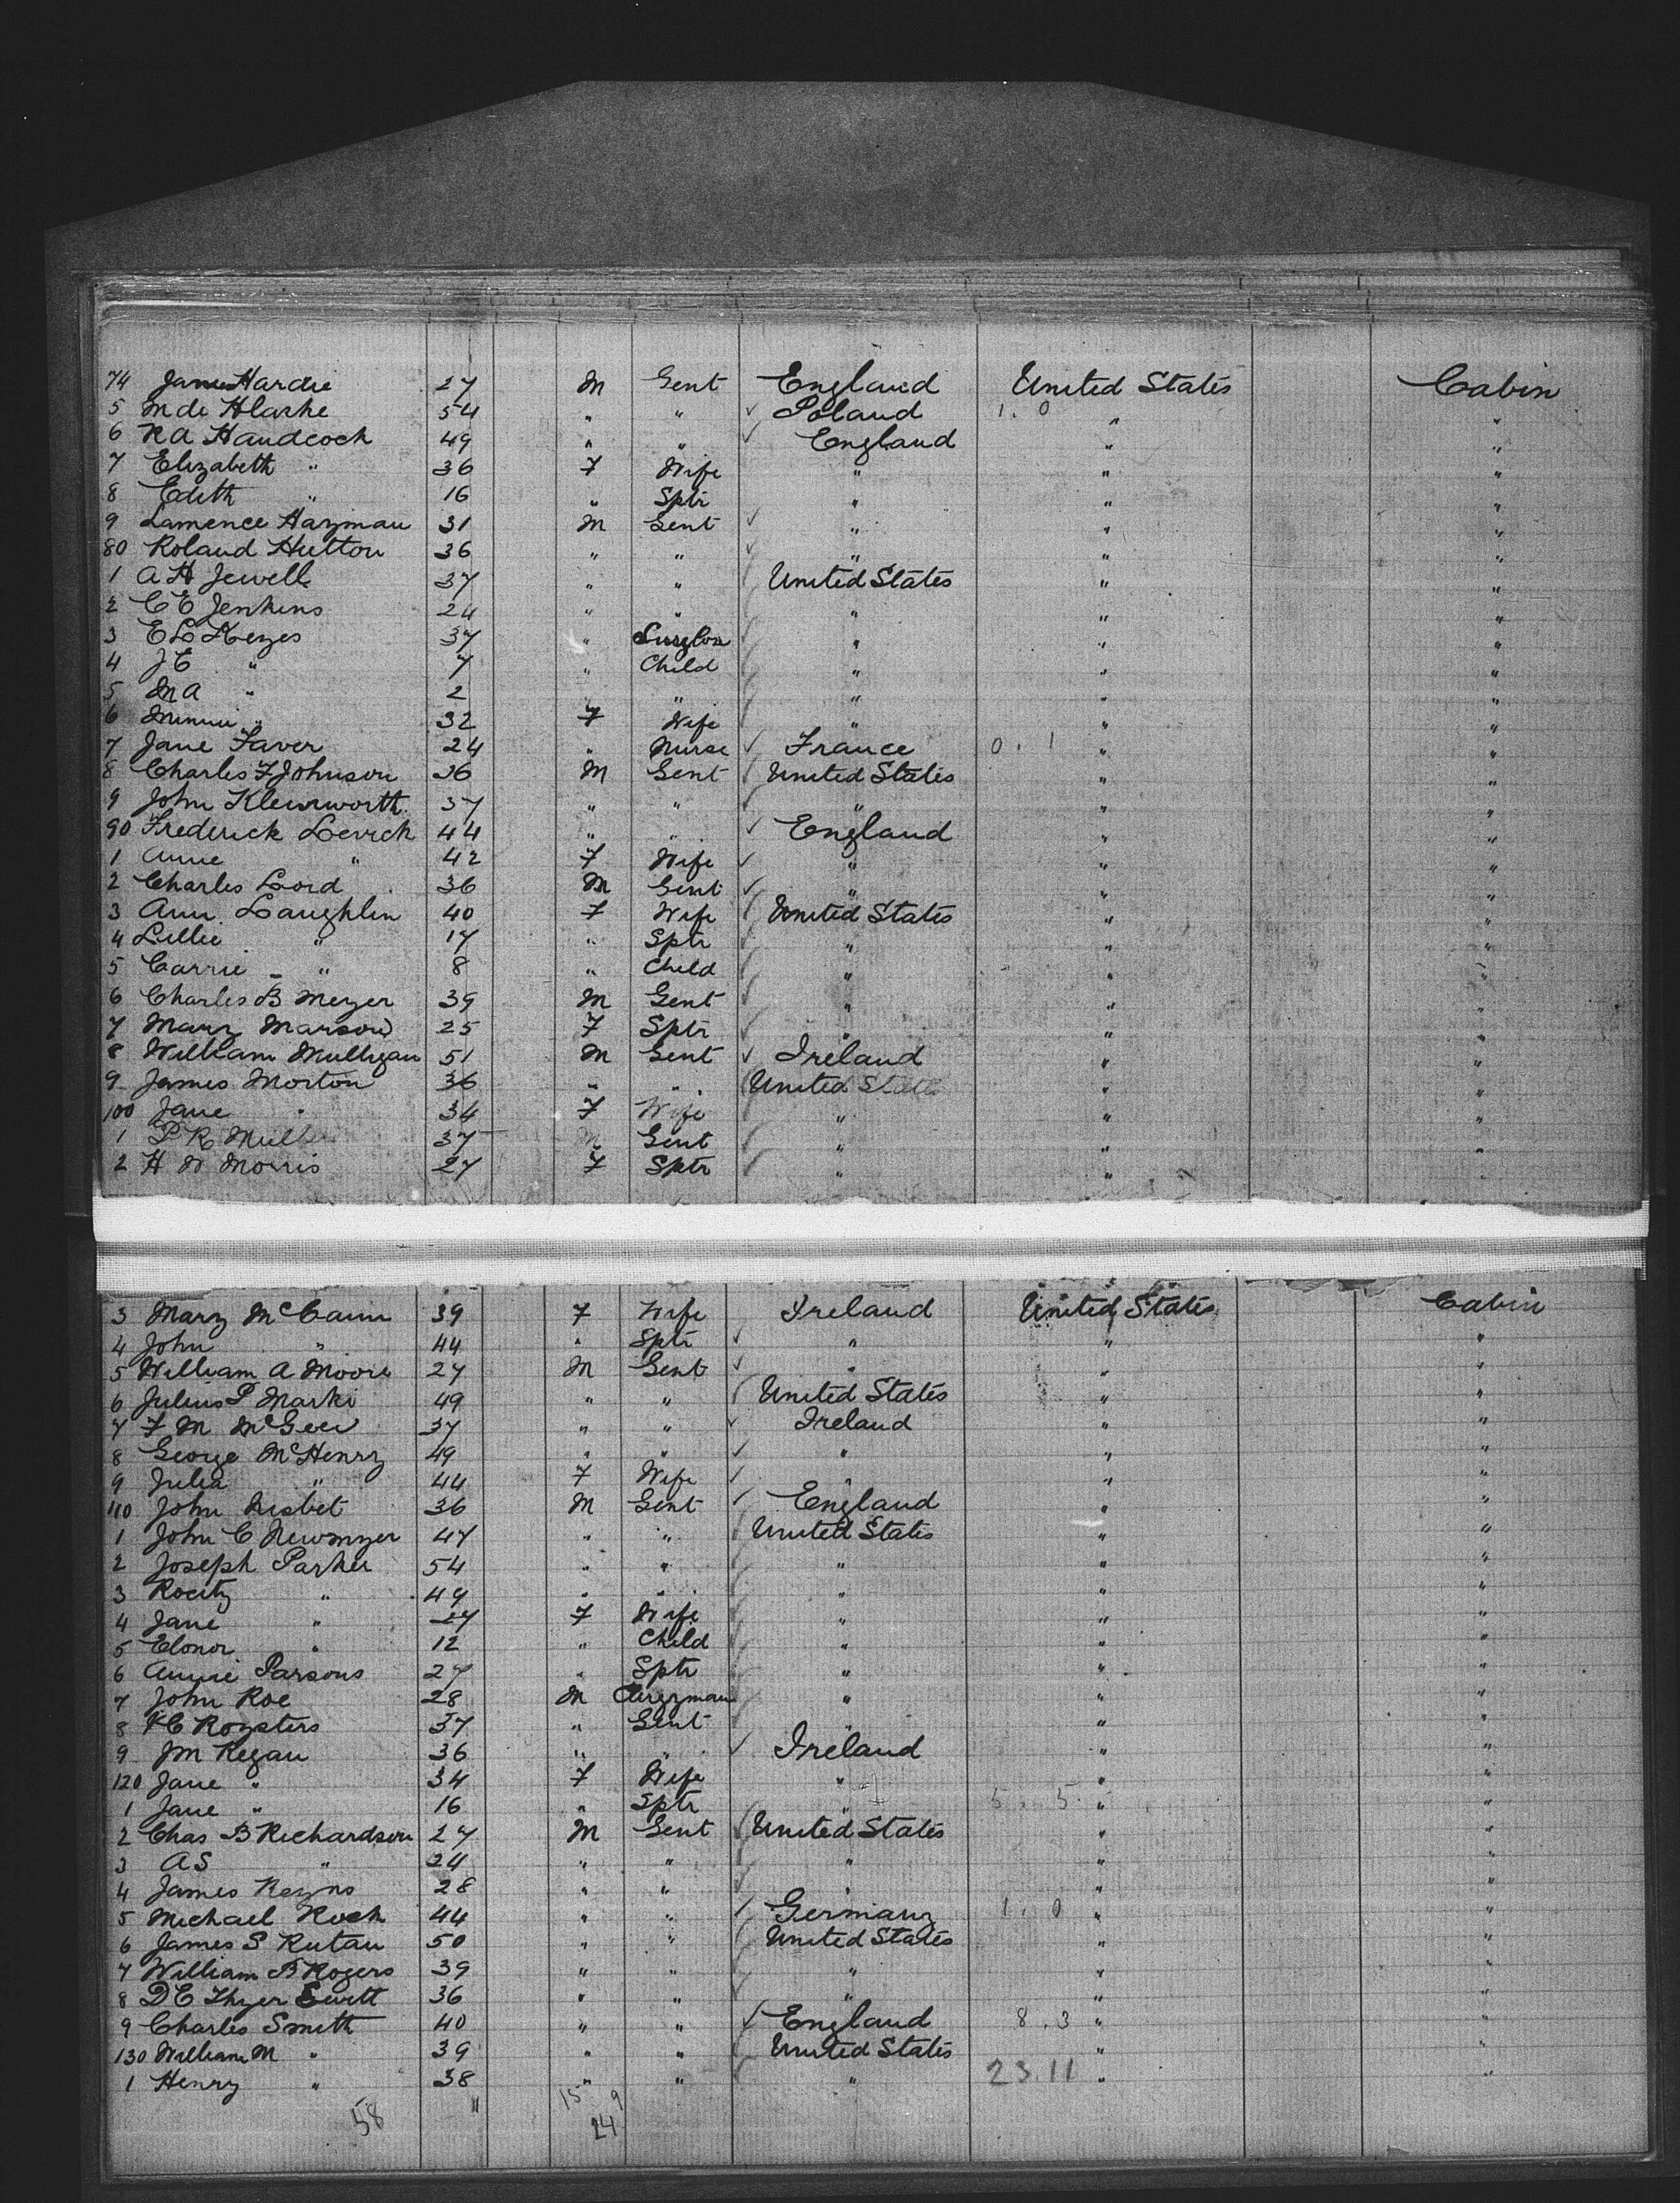 74 James Hardie 27 M Gent England United States Cabin
5 M de Hlarke 54 " " ✓ Poland 1. 0 " "
6 R A Handcock 49 " " ✓ England " "
7 Elizabeth " 36 F Wife " " "
8 Edith " 16 " Sptr " " "
9 Lamence Hayman 31 M Gent ✓ " " "
80 Roland Hutton 36 " " ✓ " " "
1 A H Jewell 37 " " United States " "
2 C E Jenkins 24 " " " " "
3 E L Keyes 37 " Surgeon " " "
4 J E " 7 " Child " " "
5 M A " 2 " " " " "
6 Minnie " 32 F Wife " " "
7 Jane Faver 24 " Nurse ✓ France 0. 1 " "
8 Charles F Johnson 36 M Gent United States " "
9 John Kleinworth 37 " " " " "
90 Frederick Levick 44 " " ✓ England " "
1 Anne " 42 F Wife ✓ " " "
2 Charles Lord 36 M Gent ✓ " " "
3 Ann Laughlin 40 F Wife United States " "
4 Lillie " 17 " Sptr " " "
5 Carrie " 8 " Child " " "
6 Charles B Meyer 39 M Gent " " "
7 Mary Marson 25 F Sptr " " "
8 William Mulligan 51 M Gent ✓ Ireland " "
9 James Morton 36 " " United States " "
100 Jane " 34 F Wife " " "
1 P R Mull 37 M Gent " " "
2 H W Morris 27 F Sptr " " "
3 Mary McCann 39 F Wife Ireland United States Cabin
4 John " 44 " Sptr ✓ " " "
5 William A Moore 27 M Gent ✓ " " "
6 Julius P Marki 49 " " United States " "
7 F M McGee 37 " " ✓ Ireland " "
8 George McHenry 49 " " ✓ " " "
9 Julia " 44 F Wife ✓ " " "
110 John Nisbet 36 M Gent ✓ England " "
1 John C Newmyer 47 " " United States " "
2 Joseph Parker 54 " " " " "
3 " 49 " " " " "
4 Jane " 27 F Wife " " "
5 Elonor " 12 " Child " " "
6 Annie Parsons 27 " Sptr " " "
7 John Roe 28 M Clergyman " " "
8 Roysters 37 " Gent " " "
9 J M Regan 36 " " ✓ Ireland " "
120 Jane " 34 F Wife " " "
1 Jane " 16 " Sptr " 5. 5 " "
2 Chas B Richardson 27 M Gent United States " "
3 A S " 24 " " " " "
4 James Keyns 28 " " " " "
5 Michael Rock 44 " " ✓ Germany 1. 0 " "
6 James S Rutan 50 " " United States " "
7 William B Rogers 39 " " " " "
8 D C Thyer Sewitt 36 " " " " "
9 Charles Smith 40 " " ✓ England 8. 3 " "
130 William M " 39 " " United States " "
1 Henry " 38 " " " 23. 11 " "
58 11 15 9
24